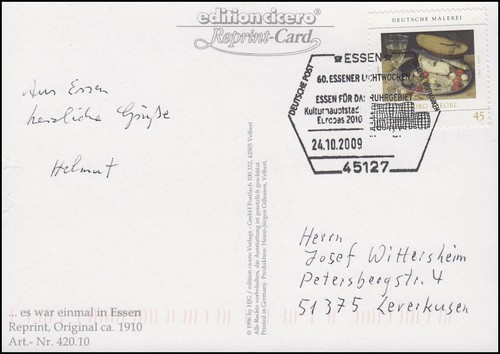 edition cicero
Reprint-Card
DEUTSCHE MALEREI
45
DEUTSCHE POST
ESSEN
60. ESSENER LICHTWOCHEN
ESSEN FÜR DAS RUHRGEBIET
Kulturhauptstadt
Europas 2010
24.10.2009
45127
Aus Essen
herzliche Grüße
Helmut
Herrn
Josef Wittersheim
Petersbergstr. 4
51375 Leverkusen
© 1996 by HIG / edition cicero Verlags - GmbH Postfach 100 332, 42803 Velbert.
Alle Rechte vorbehalten, die Ausstattung ist gesetzlich geschützt.
Printed in Germany. Produktion: Hans-Jürgen Gillessen, Velbert.
... es war einmal in Essen
Reprint, Original ca. 1910
Art.- Nr. 420.10